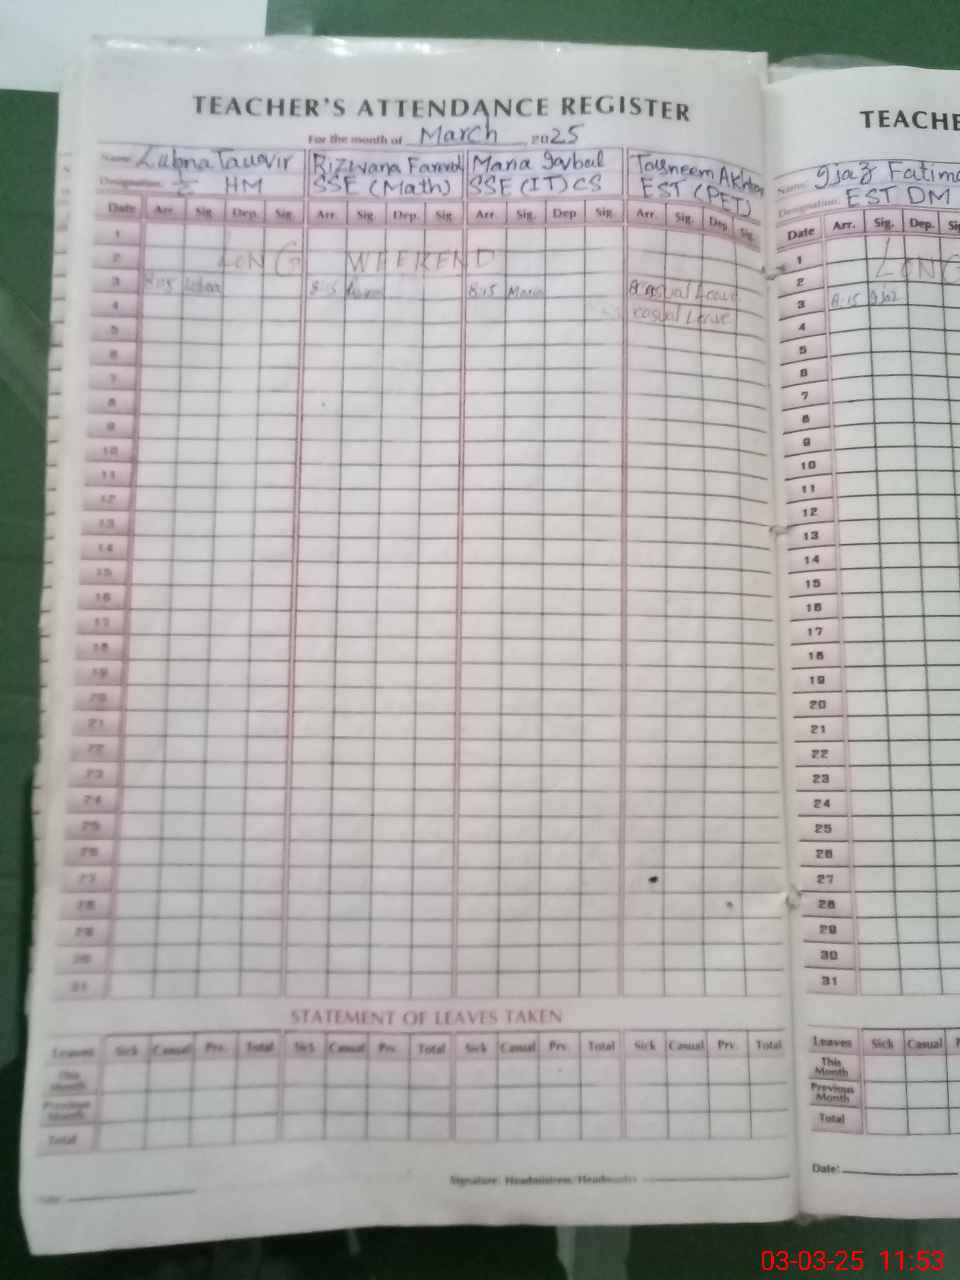 TEACHER'S ATTENDANCE REGISTER
For the month of March 2025
Name Lubna Tauqir Rizwana Farrod Maria Iqbal Tasneem Akhtar
Designation HM SSE (Math) SSE (IT) CS EST (PET)
Date Arr. Sig. Dep. Sig. Arr. Sig. Dep. Sig. Arr. Sig. Dep. Sig. Arr. Sig. Dep. Sig.
1
2 LONG WEEKEND
3 8:15 8:15 8:15 Maria Casual Leave
4 casual Leave
5
6
7
8
9
10
11
12
13
14
15
16
17
18
19
20
21
22
23
24
25
26
27
28
29
30
31
STATEMENT OF LEAVES TAKEN
Leaves Sick Casual Prv. Total Sick Casual Prv. Total Sick Casual Prv. Total Sick Casual Prv. Total
This Month
Previous Month
Total
Signature: Headmistress/Headmaster
TEACHE
Name: Ijaz Fatima
Designation: EST DM
Date Arr. Sig. Dep. Sig
1
2 LONG
3 8:15 Ijaz
4
5
6
7
8
9
10
11
12
13
14
15
16
17
18
19
20
21
22
23
24
25
26
27
28
29
30
31
Leaves Sick Casual
This Month
Previous Month
Total
Date:
03-03-25 11:53